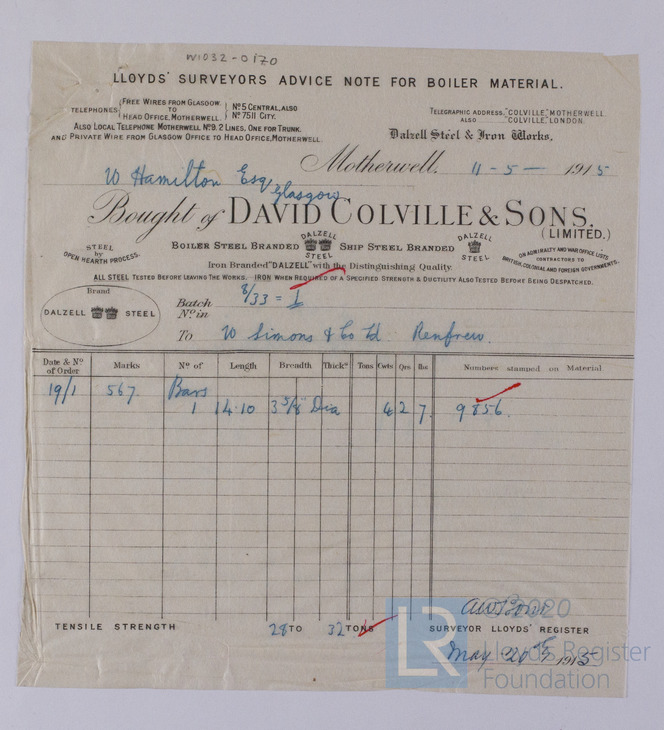 W1032-0170
LLOYDS' SURVEYORS ADVICE NOTE FOR BOILER MATERIAL.
TELEPHONES { FREE WIRES FROM GLASGOW TO HEAD OFFICE, MOTHERWELL } No 5 CENTRAL, ALSO No 7511 CITY.
ALSO LOCAL TELEPHONE MOTHERWELL No 9. 2 LINES, ONE FOR TRUNK.
AND PRIVATE WIRE FROM GLASGOW OFFICE TO HEAD OFFICE, MOTHERWELL
TELEGRAPHIC ADDRESS, "COLVILLE", MOTHERWELL
ALSO "COLVILLE", LONDON.
Dalzell Steel & Iron Works,
Motherwell, 11-5- 1915
W Hamilton Esq Glasgow
Bought of DAVID COLVILLE & SONS, (LIMITED.)
STEEL by OPEN HEARTH PROCESS.
BOILER STEEL BRANDED DALZELL STEEL SHIP STEEL BRANDED DALZELL STEEL
ON ADMIRALTY AND WAR OFFICE LISTS CONTRACTORS TO BRITISH, COLONIAL AND FOREIGN GOVERNMENTS,
Iron Branded "DALZELL" with the Distinguishing Quality.
ALL STEEL TESTED BEFORE LEAVING THE WORKS. IRON WHEN REQUIRED OF A SPECIFIED STRENGTH & DUCTILITY ALSO TESTED BEFORE BEING DESPATCHED.
Brand
DALZELL STEEL
Batch No in 8/33 = 1
To W Simons & Co Ld Renfrew.
Date & No of Order Marks No of Length Breadth Thickss Tons Cwts Qrs lbs Numbers stamped on Material
19/1 567. Bars
1 14.10 3 5/8" Dia 4 2 7. 9856.
TENSILE STRENGTH 28 TO 32 TONS
SURVEYOR LLOYDS' REGISTER
May 20th 1915
LR © 2020
Lloyd's Register
Foundation